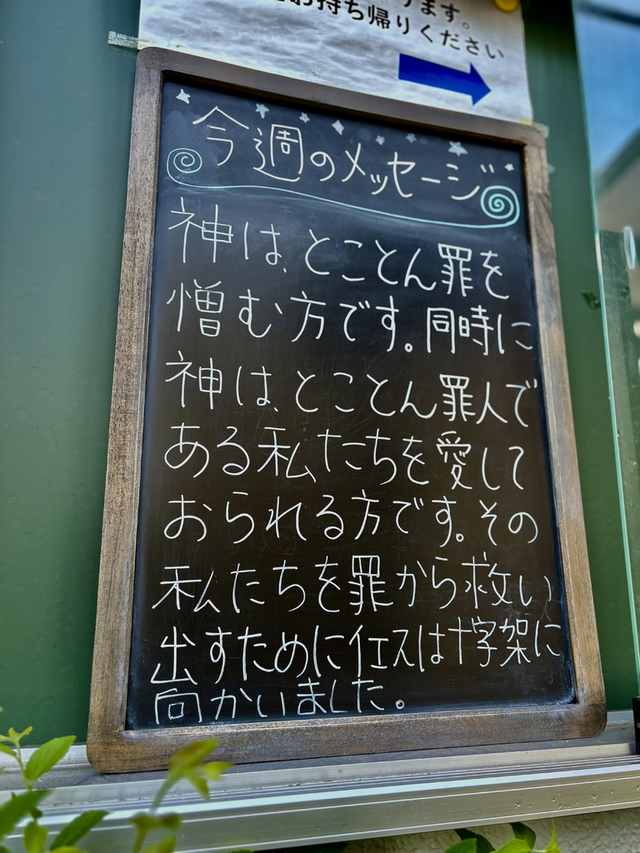 ります。
お持ち帰りください
今週のメッセージ
神は、とことん罪を
憎む方です。同時に
神は、とことん罪人で
ある私たちを愛して
おられる方です。その
私たちを罪から救い
出すためにイエスは十字架に
向かいました。